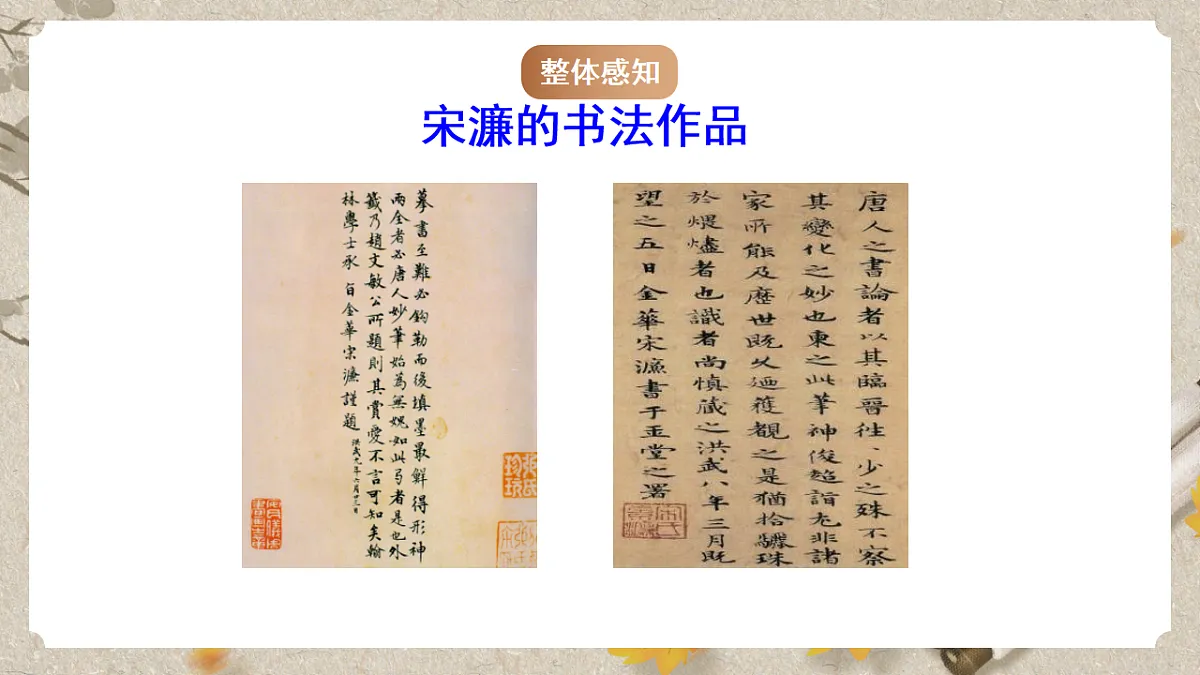 整体感知
宋濂的书法作品
摹書至難必鈎勒而後填墨最鮮得形神
兩全者必唐人妙筆始為無媿如此弓者是也外
籤乃趙文敏公所題則其賞愛不言可知矣翰
林學士承旨金華宋濂謹題
洪武九年六月廿三日
唐人之書論者以其臨晉往、少之殊不察
其變化之妙也東之此筆神俊超詣尤非諸
家所能及歷世既久廼獲觀之是猶拾驪珠
於煨燼者也識者尚慎藏之洪武八年三月既
望之五日金華宋濂書于玉堂之署